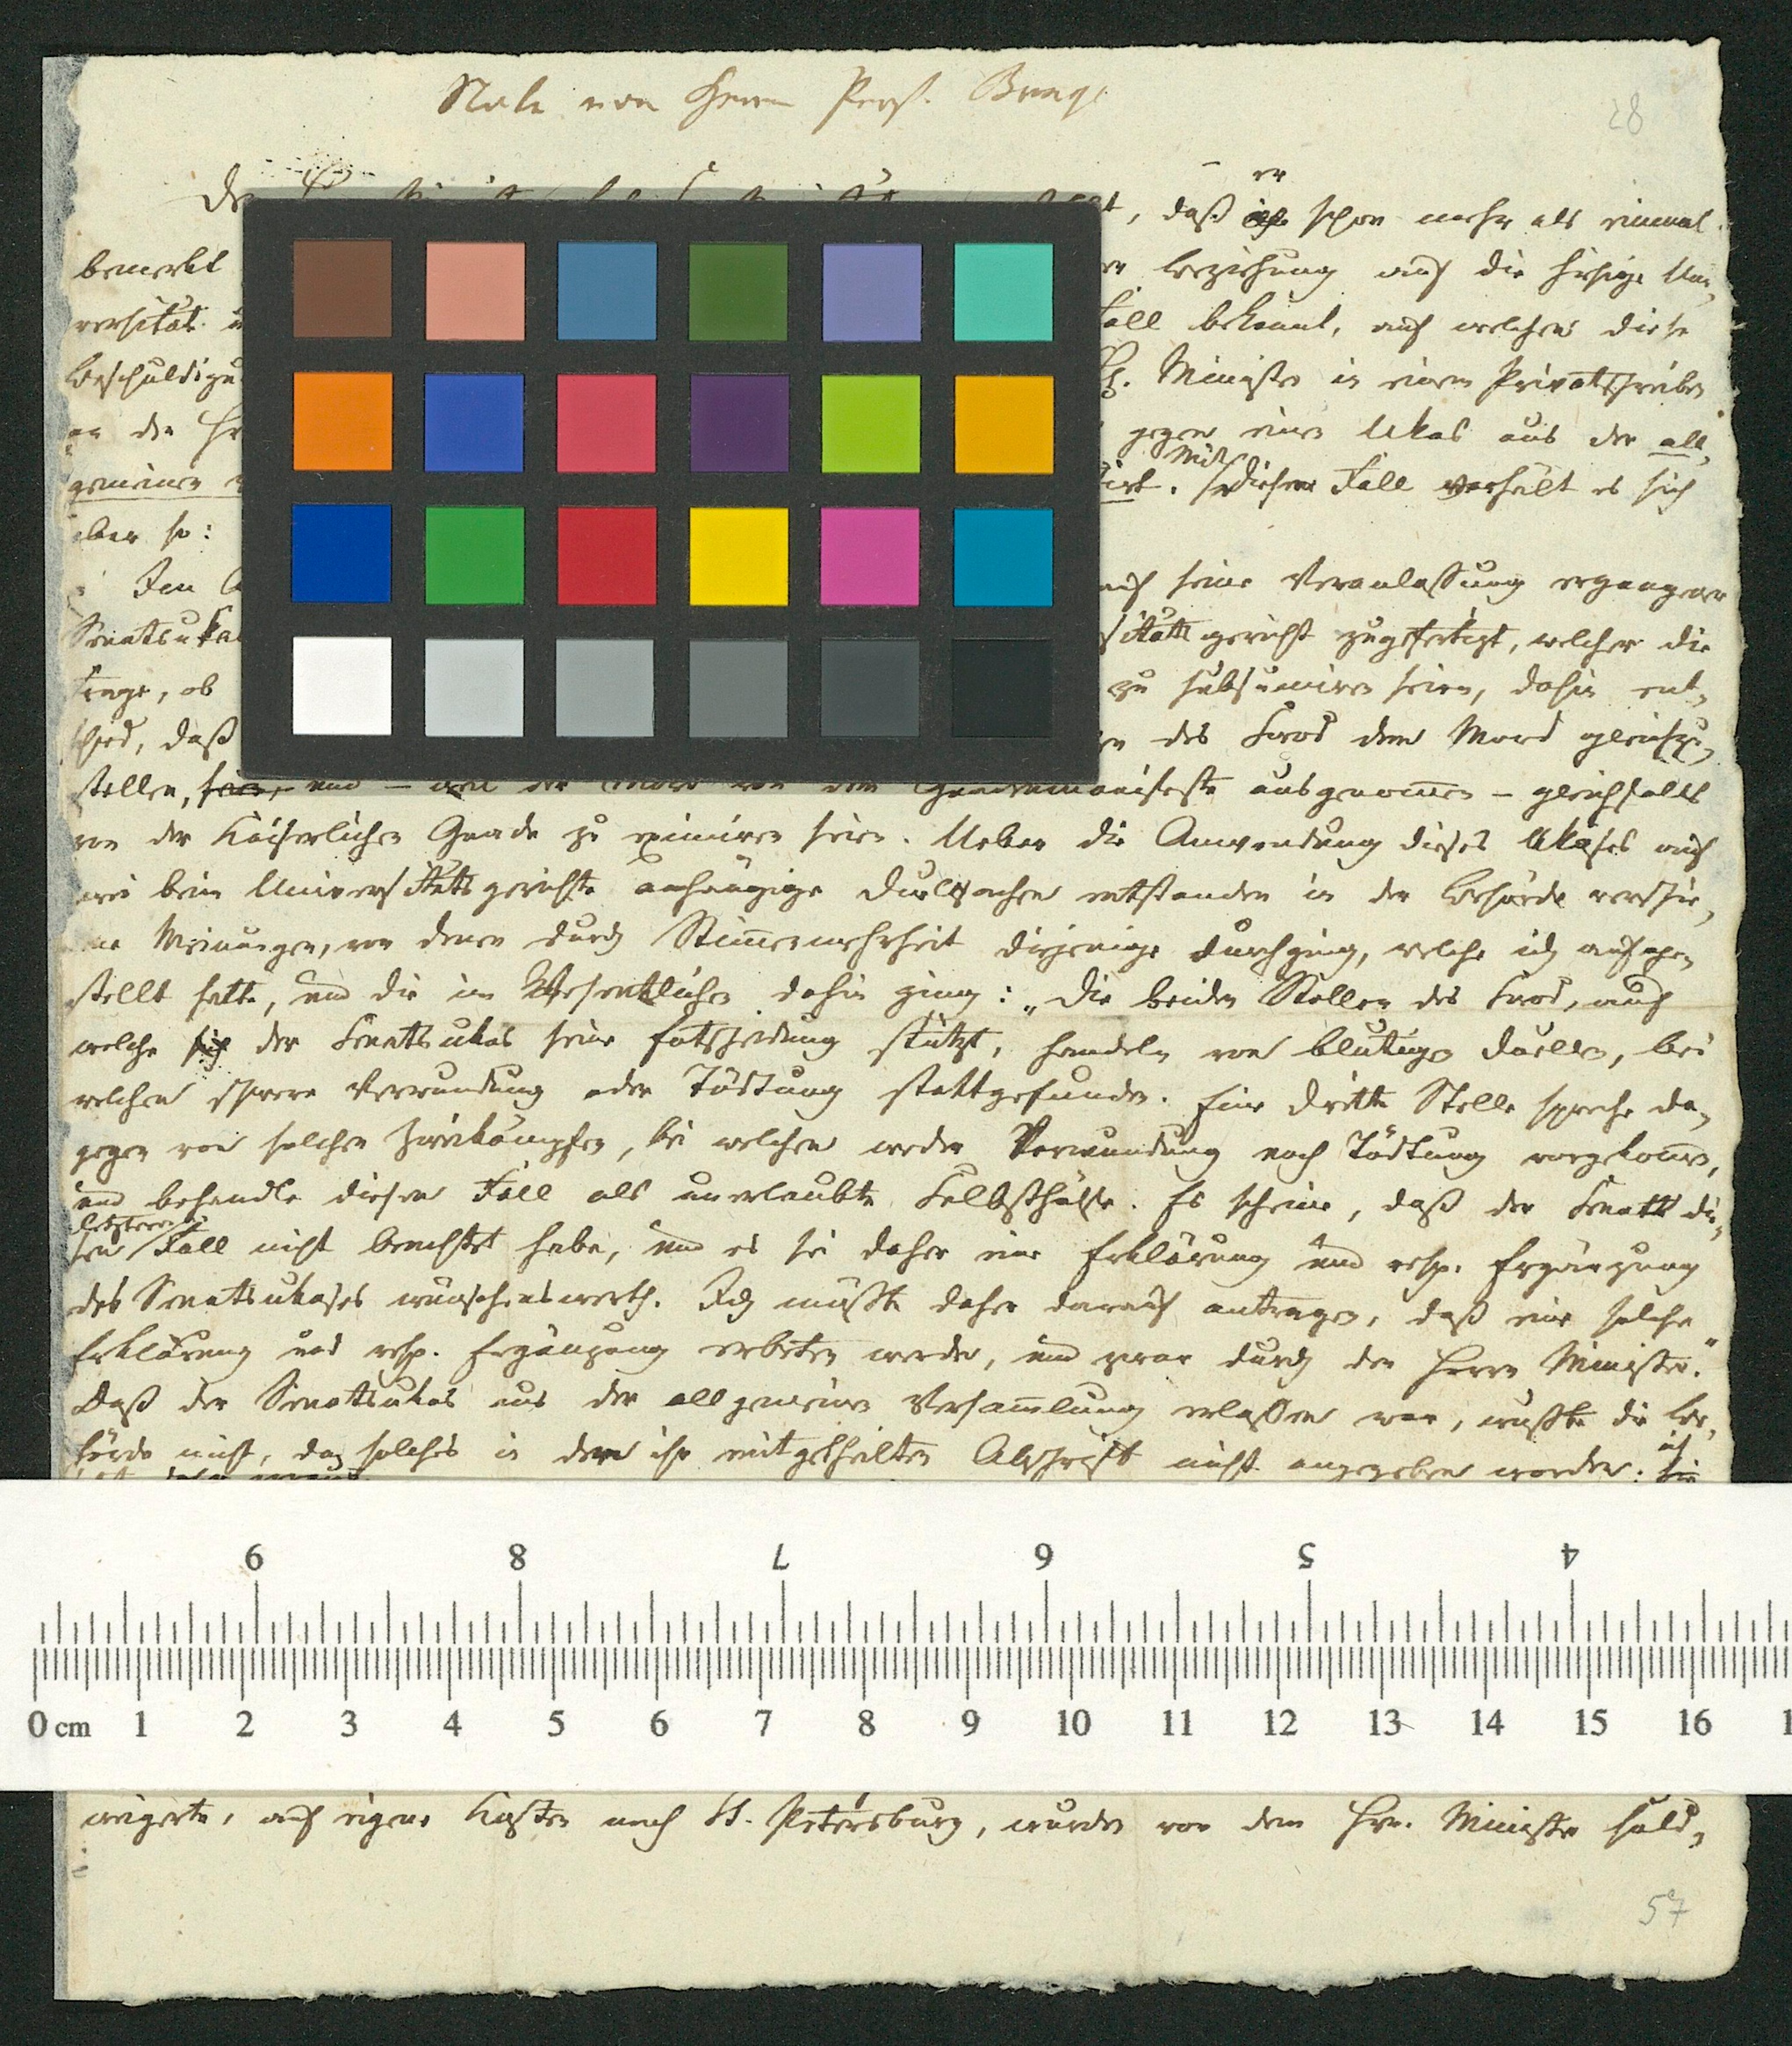 Note von Herrn Prof. Bunge
28
er
De , daß schon mehr als einmal
bemerkt Beziehung auf die hiesige Uni„
versität Fall bekannt, auf welchen diese
Beschuldigu Minister in einem Privatschreiben
an den gegen einen Ukas aus der all„
gemeinen Mit diesem Fall verhält es sich
aber so:
Den auf seine Veranlassung ergangener
Senatsuka gericht zugefertigt, welcher die
Frage, ob zu subsumiren seien, dahin ent„
schied, daß des Swod dem Mord gleichzu„
stellen, und – weil der Mord von dem Gnadenmanifeste ausgenommen – gleichfalls
von der Kaiserlichen Gnade zu eximiren seien. Ueber die Anwendung dieses Ukases auf
beim Universitätsgerichte anhängige Duellsachen entstanden in der Behörde verschie„
ne Meinungen, von denen durch Stimmenmehrheit diejenige durchging, welche ich aufge„
stellt hatte, und die im Wesentlichen dahin ging: „Die beiden Stellen des Swod, auf
welche sich der Senatsukas seine Entscheidung stützt, handeln von blutigen Duellen, bei
welchen schwere Verwundung oder Tödtung stattgefunden. Eine dritte Stelle spreche da„
gegen von solchen Zweikämpfen, bei welchen weder Verwundung noch Tödtung vorgekommen,
und behandle diesen Fall als unerlaubte Selbsthülfe. Es scheine, daß der Senat die„
letzteren
sen Fall nicht beachtet habe, und es sei daher eine Erklärung und resp. Ergänzung
des Senatsukases wünschenswerth. Ich müßte daher darauf antragen, daß eine solche
Erklärung und resp. Ergänzung erbeten werde, und zwar durch den Herrn Minister."
Daß der Senatsukas aus der allgemeinen Versammlung erlassen war, wußte die Be„
hörde nicht, da solches in der ihr mitgetheilten Abschrift nicht angegeben worden.
9 8 7 6 5 4
0 cm 1 2 3 4 5 6 7 8 9 10 11 12 13 14 15 16
weigerte, auf eigene Kosten nach St. Petersburg, wurde von dem Hrn. Minister
57